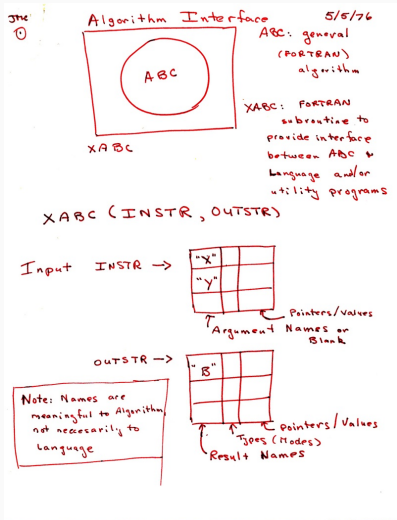 Algorithm Interface
5/5/76
ABC
XABC
ABC: general
(FORTRAN)
algorithm
XABC: FORTRAN
subroutine to
provide interface
between ABC &
Language and/or
utility programs
XABC (INSTR, OUTSTR)
Input INSTR →
"X"
"Y"
Pointers/Values
Argument Names or
Blank
OUTSTR →
"B"
Pointers/Values
Types (Modes)
Result Names
Note: Names are
meaningful to Algorithm,
not neccesarily to
Language